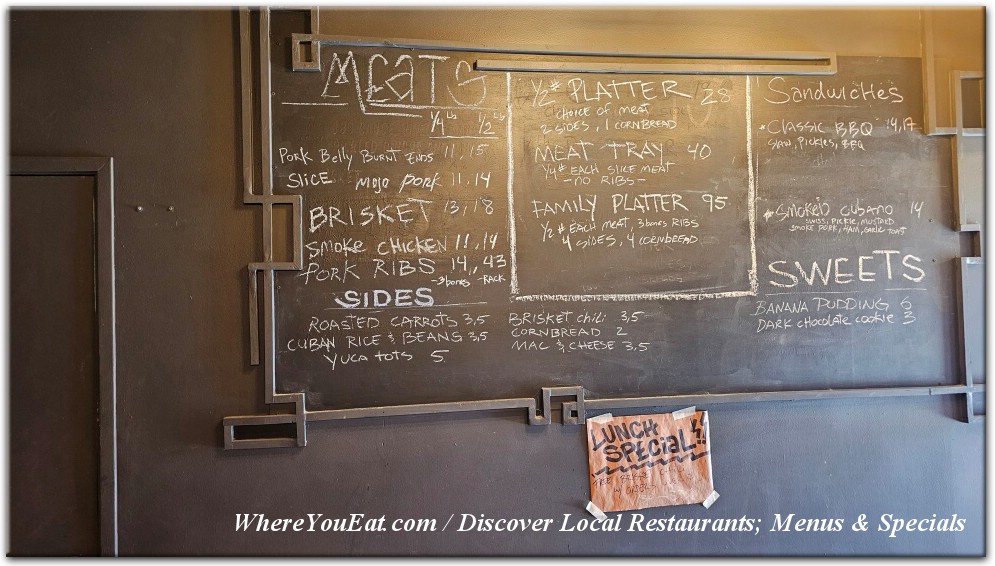 MEATS
1/4 Lb 1/2 Lb
Pork Belly Burnt Ends 11, 15
Slice Mojo Pork 11, 14
BRISKET 13, 18
Smoke CHICKEN 11, 14
PORK RIBS 14, 43
3 bones - RACK
SIDES
ROASTED CARROTS 3,5
CUBAN RICE & BEANS 3,5
YUCA tots 5
BRISKET chili 3,5
CORNBREAD 2
MAC & CHEESE 3,5
1/2# PLATTER 28
CHOICE of MEAT
2 SIDES, 1 CORNBREAD
MEAT TRAY 40
1/4# EACH SLICE MEAT
- NO RIBS -
FAMILY PLATTER 95
1/2# EACH MEAT, 3 bones RIBS
4 SIDES, 4 CORNBREAD
Sandwiches
CLASSIC BBQ 14, 17
SLAW, PICKLES, BBQ
Smoked Cubano 14
SWISS, PICKLE, MUSTARD
SMOKE PORK, HAM, GARLIC TOAST
SWEETS
BANANA PUDDING 6
DARK chocolate cookie 3
LUNCH
SPECIAL!!
WhereYouEat.com / Discover Local Restaurants; Menus & Specials